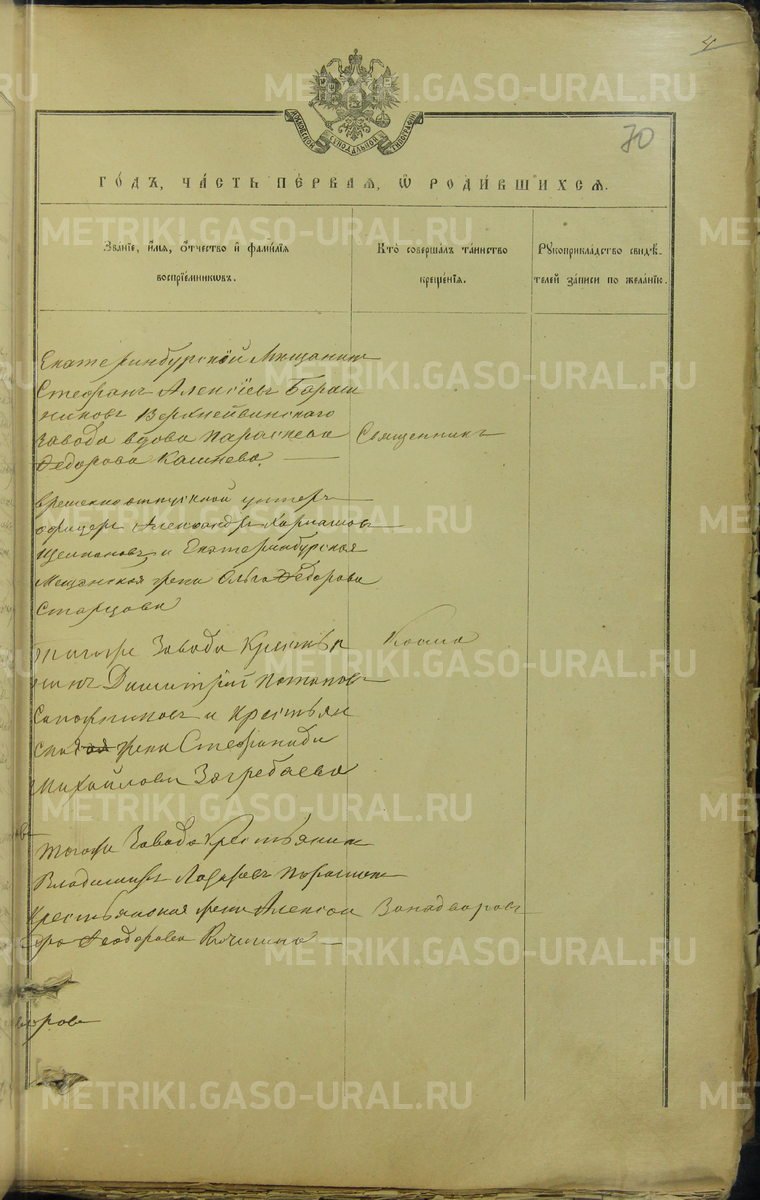 4
70
МОСКОВСКОЙ СѴНОДАЛЬНОЙ ТИПОГРАФІИ
ГО́ДЪ, ЧА́СТЬ ПЕ́РВАЯ, Ѡ҆ РОДИ́ВШИХСЯ.
Зва́ніе, и҆́мя, ѻ҆́тчество и҆ фами́лія
воспріе́мниковъ.
Кто̀ соверша́лъ та́инство
креще́нія.
Рꙋкоприкла́дство свидѣ́-
телей за́писи по жела́нію.
Екатеринбурскій Мещанин
Стефанъ Алексіевъ Бараш
никовъ Верхнейвинскаго
завода вдова Параскева
Федорова Калинева.
Священникъ
временно отпускной унтеръ
офицеръ Александръ
и Екатеринбурская
Мещанская жена Ольга Федорова
Старцова
Тогоже Завода Крестья
нинъ Димитрій Потаповъ
Сапожниковъ и Крестьян
ская жена Стефанида
Михайлова Загребаева
Косма
Тогоже Завода Крестьянин
Владимиръ Лазаревъ
Крестьянская жена Алексан
дра Феодорова
Западворовъ
воровъ
METRIKI.GASO-URAL.RU